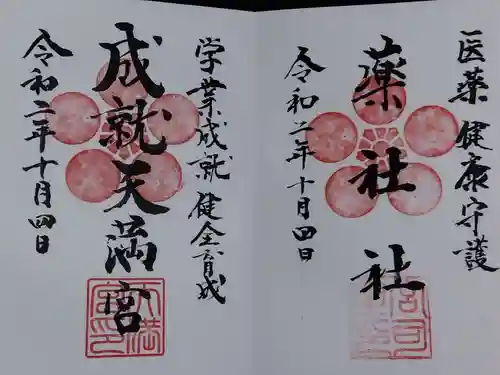 医薬 健康守護
薬社社
令和二年十月四日
学業成就 健全育成
成就天満宮
令和二年十月四日